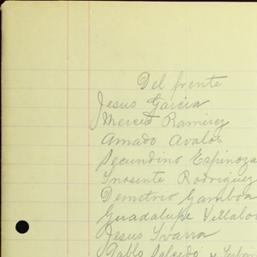 Del frente
Jesus Garcia
Merced Ramirez
Amado Avalos
Secundino Espinoza
Inosente Rodriguez
Demetrio Gamboa
Guadalupe Villalo
Jesus Ivarra
Pablo Salcedo y